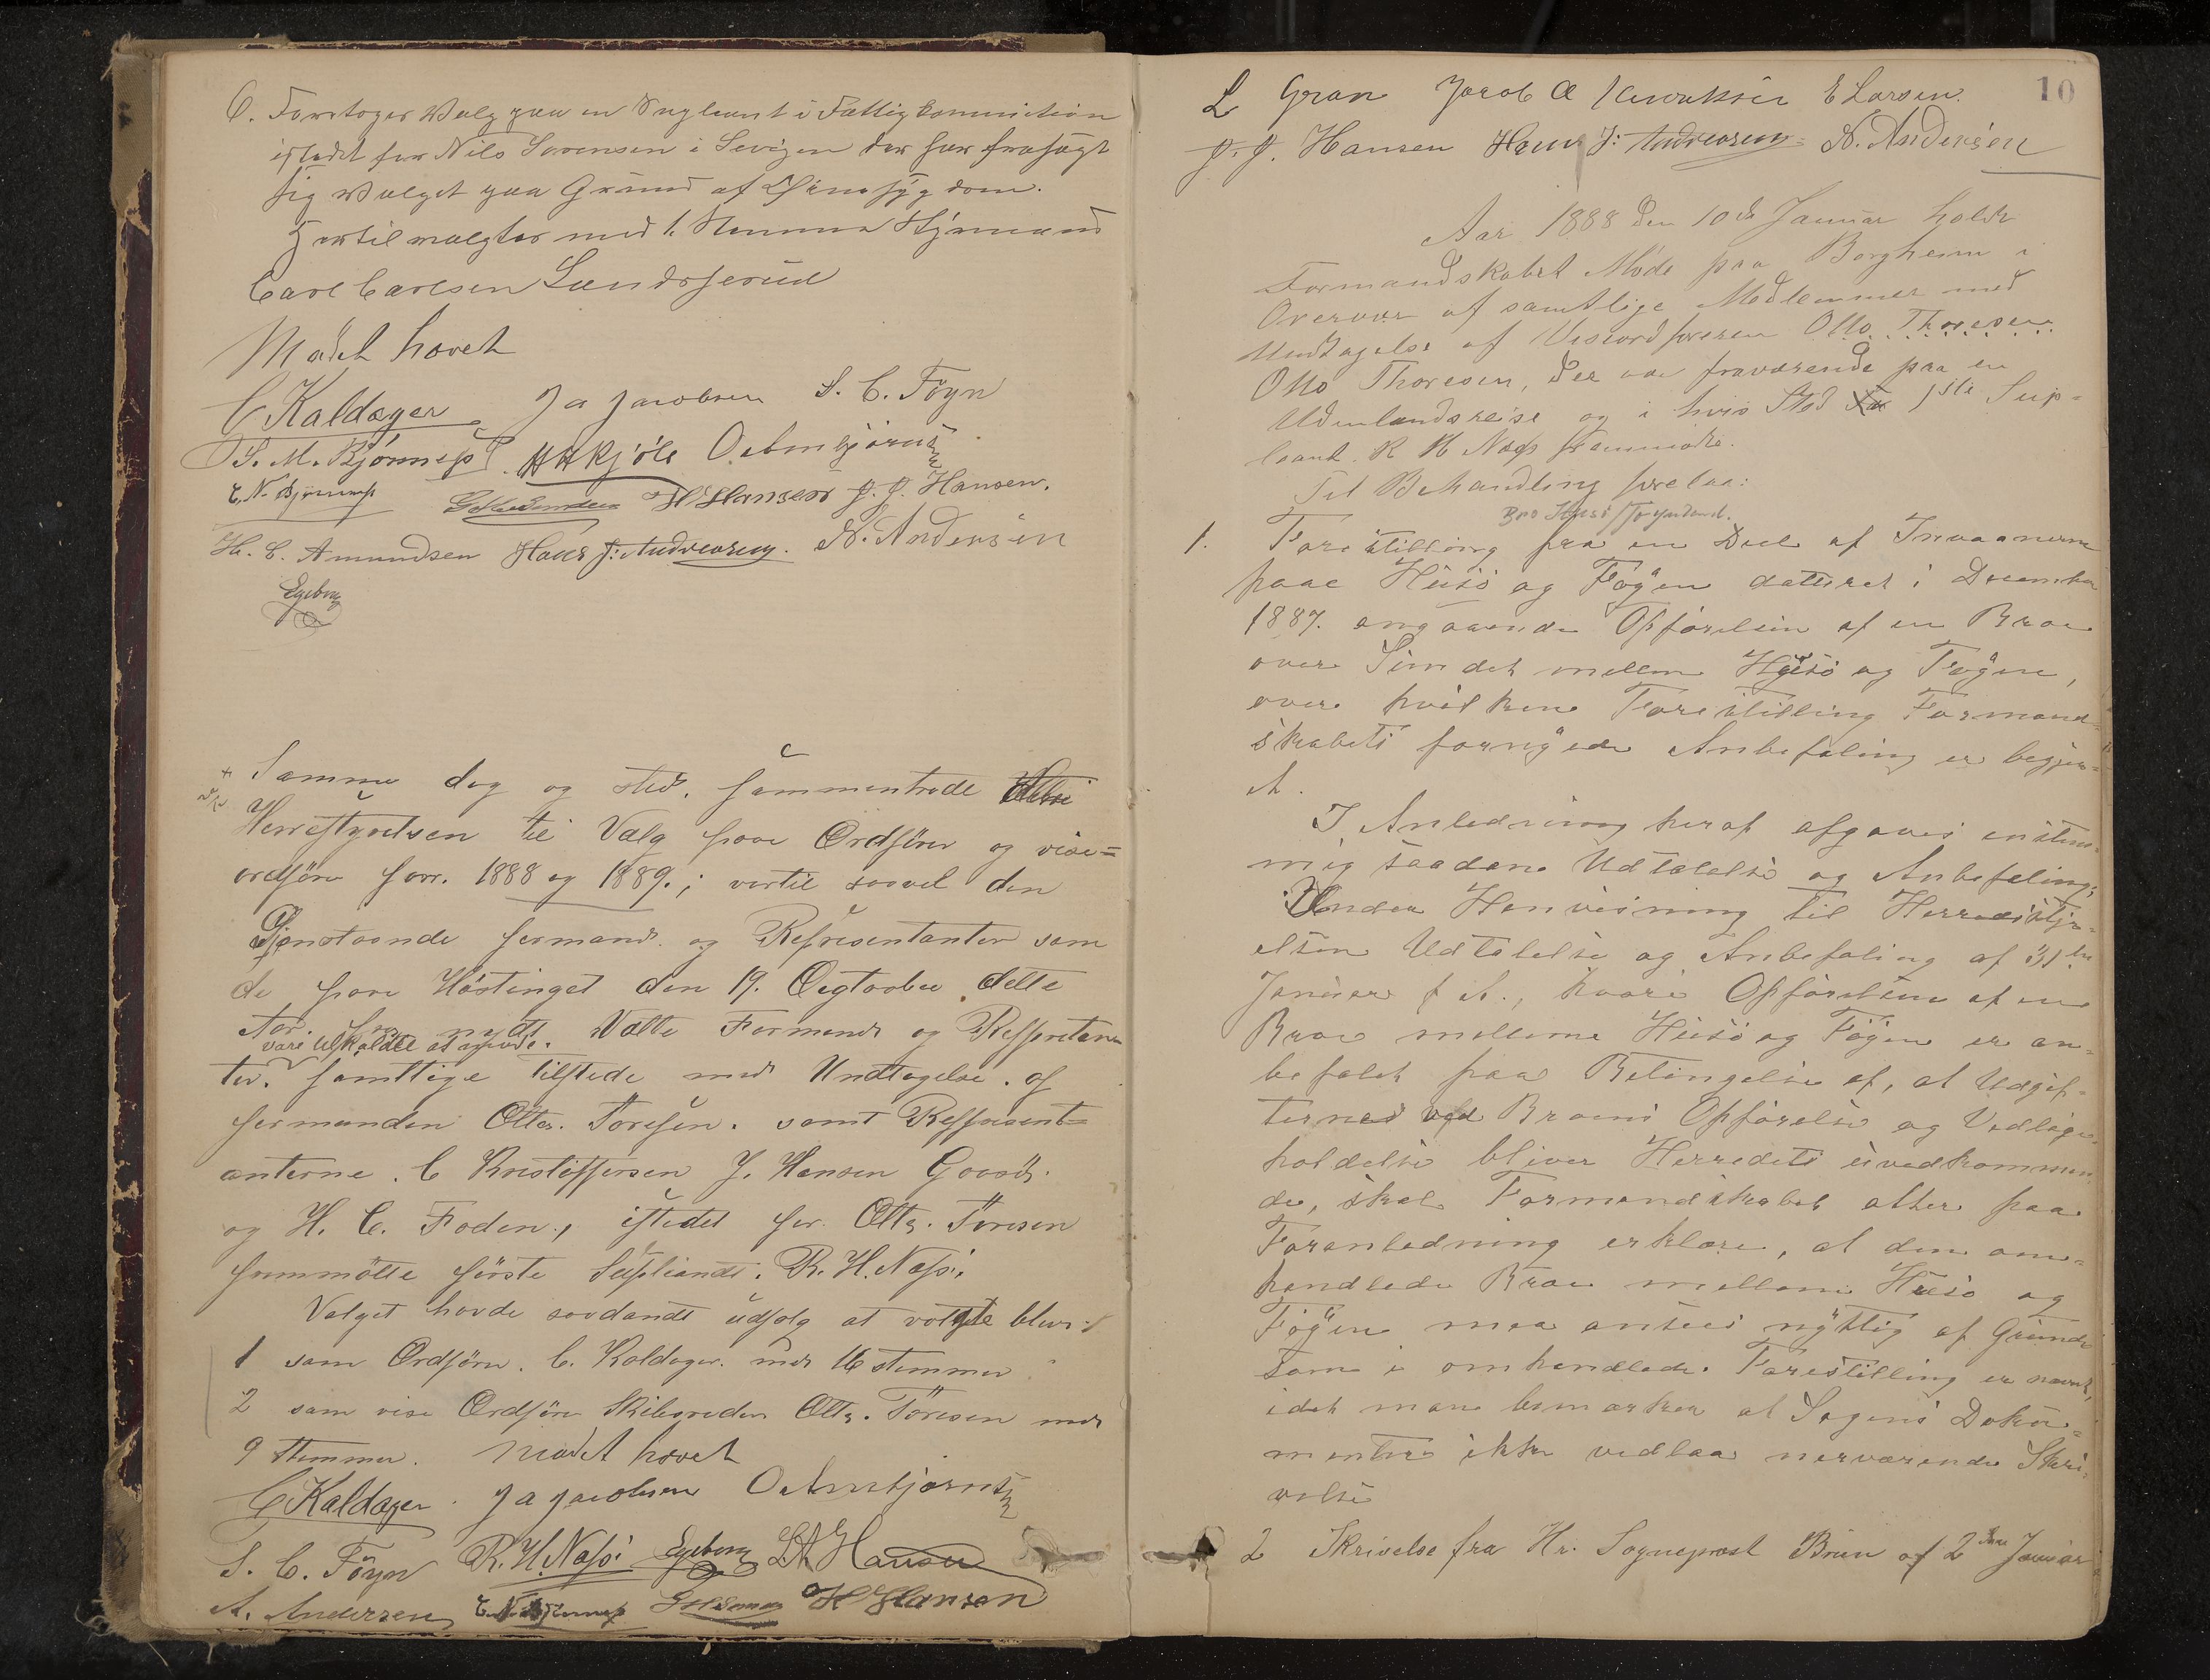 6. Foretoges Valg paa en Supleant i Fattigkommistion
istedet for Nils Sørensen i Sevigen der har frasagt
sig Valget paa Grund af Øiensygdom.
Hertil valgtes med 1 Stemme Styrmand
Carl Carlsen Sundsserud
Mødet hævet
C Kaldager Ja Jacobsen S. C. Föyn
S. M. Bjønnes HH Kjøle O Arnbjørnsen
E. N. Bjønnes H Hanson J. J. Hansen.
H. C. Amundsen Hans J: Andreasen. A. Andersen
Egeberg
Samme dag og sted. sammentrode
Herrestyrelsen til Valg paa Ordfører og vise=
ordfører forr. 1888 og 1889.; vortil saavel den
Gjenstaande formand. og Represententer som
de paa Høstinget den 19. Ogtober dette
Aar. ny Valte Formend og Represetan
vare tilkaldte at agere.
ter. samtlige tilstede med Undtagelse. af
formanden Otto. Toresen. samt Represent=
anterne. C Kristoffersen J. Hansen Gaasö.
og H. C. Foden., istedet for Otto. Toresen
fremmötte förste Supliandt. R. H. Næss.
Valget havde saadandt udfalg at valgte blev:
1 som Ordfører. C. Kaldager. med 16 stemmer
2 som vise Ordfører Skibsreder Otto. Toresen med
9 Stemmer. Mødet hævet
C Kaldager. Ja Jacobsen O Arnbjørnsen
S. C. Föyn R. H. Næss. Egeberg L A Hansen
A. Andersen E. N. Bjønnes H Hanson
10
L Gran Jacob A Henriksen E Larsen.
J. J. Hansen Hans J: Andreasen A. Andersen
Aar 1888 den 10de Januar holdt
Formandskabet Møde paa Borgheim i
Overvær af samtlige Medlemmer med
Undtagelse af Viseordføreren Otto Thoresen
Otto Thoresen, der var fraværende paa en
Udenlandsreise og i hvis Sted 1ste Sup=
leant R H Næss fremmødte.
Til Behandling forelaa:
Bro Husö
1. Forestilling fra en Deel af Invaanerne
paa Husö og Föÿen dateret i December
1887. angaaende Opförelsen af en Broe
over Sundet mellem Husö og Föÿen,
over hvilken Forestilling Formand=
skabets fornÿede Anbefaling er begjer=
et.
I Anledning heraf afgaves enstem=
mig saadan Udtalelse og Anbefaling:
Under Henvisning til Herredsstyr=
elsen Udtalelse og Anbefaling af 31te
Januar f. A., hvori Opförelsen af en
Broe mellem Husö og Föÿen er an=
befalet paa Betingelse af, at Udgif=
terne ved Broens Opförelse og Vedlige=
holdelse bliver Herredets uvedkommen=
de, skal Formandskabet atter paa
Foranledning erklære, at den om=
handlede Broe mellem Husö og
Föÿen maa ansees nÿttig af Grunde
som i omhandlede Forestilling er nævnt,
idet man bemærker at Sagens Doku=
menter ikke vedlaa nærværende Skri=
velse
2 Skrivelse fra Hr. Sogneprest Bruun af 2den Januar